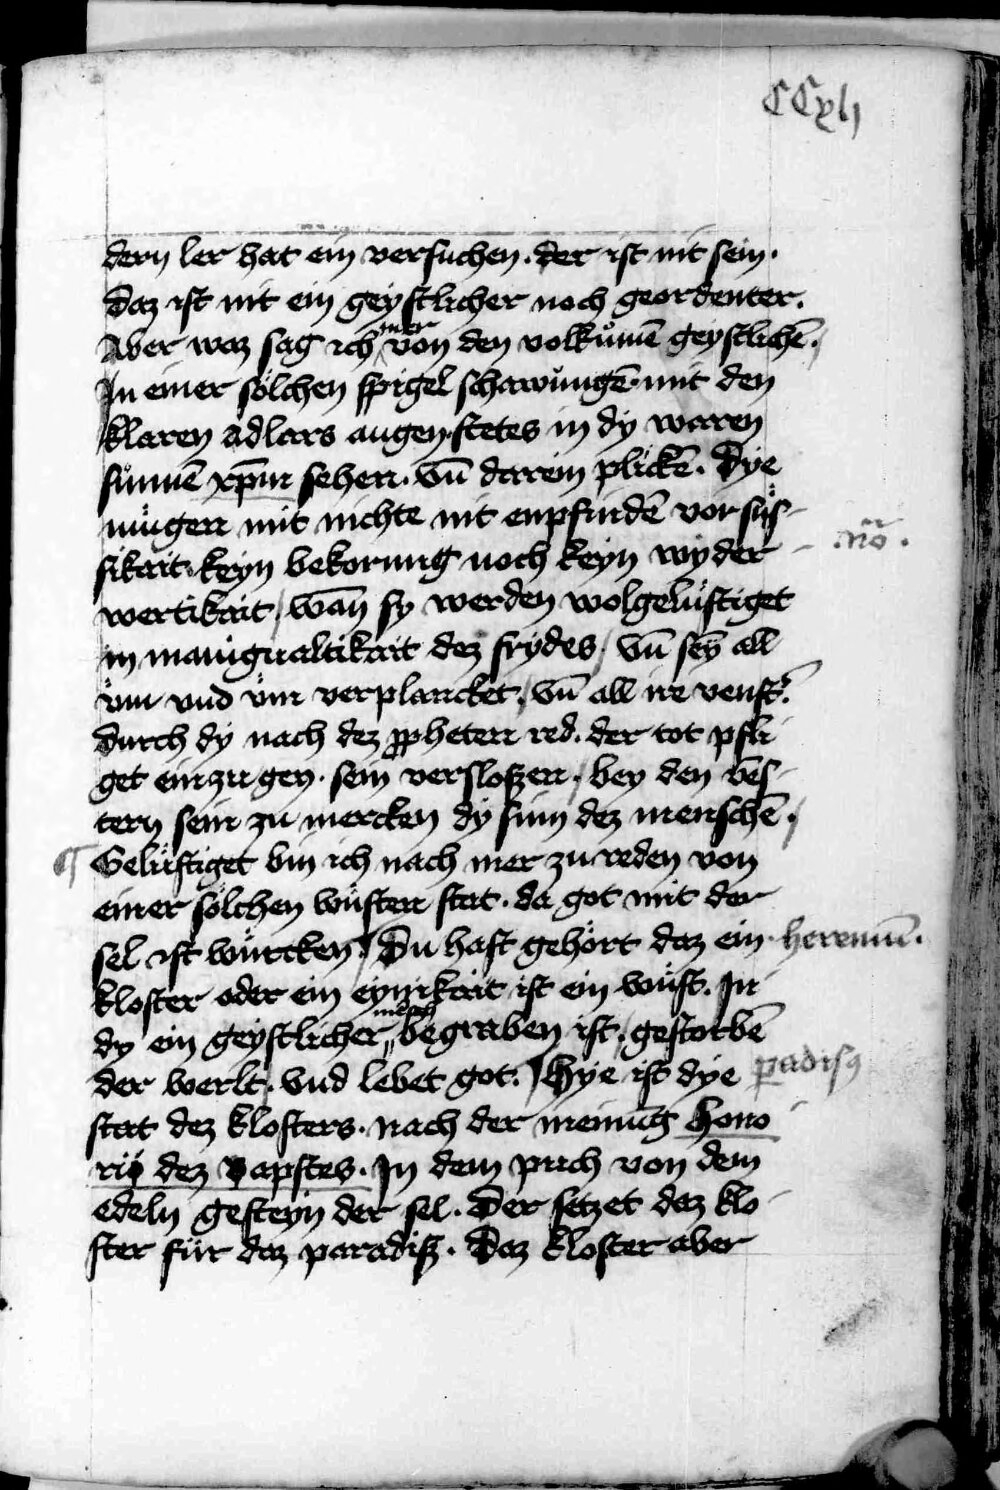 CCxlj
dern ler hat ein versuchen. der ist nit sein.
Daz ist nit ein geystlicher noch geordenter.
Aber waz sag ich mer von den volkůmē geystlichē.
In einer sölchen spigel schawůngē. mit den
klaren adlars augen stetes in dy waren
sůnnē xp̄m sehen. vn̄ darein plickē. Dye
můgen mit nichte nit enpfindē vor sůs-
sikait. keyn bekorung noch keyn wyder-
wertikait / wan̄ sy werden wolgelůstiget
.n̄o.
in manigualtikait dez frydes / vn̄ sey̅ all
vm vnd vm verplancket. vn̄ all ire venst̄.
durch dy nach dez ꝓpheten red. der tot pfli
get ein zu gen. sein versloßen / bey den ven̄s-
tern sein zu mercken dy sinn dez menschē. /
¶ Gelůstiget bin ich nach mer zu reden von
einer sölchen wůsten stat. da got mit der
sel ist wůrcken. Du hast gehört daz ein heremū.
kloster oder ein eynikait ist ein wůst. In
dy ein geystlicher mēsch begraben ist / gestorbē
der werlt. vnd lebet got. Hye ist dye ꝑadisꝰ
stat dez klosters. nach der meinūg Hono
rii dez bapstes. In dem puch von dem
edeln gesteyn der sel. Der setzet daz klo
ster fůr daz paradiß. Daz kloster aber